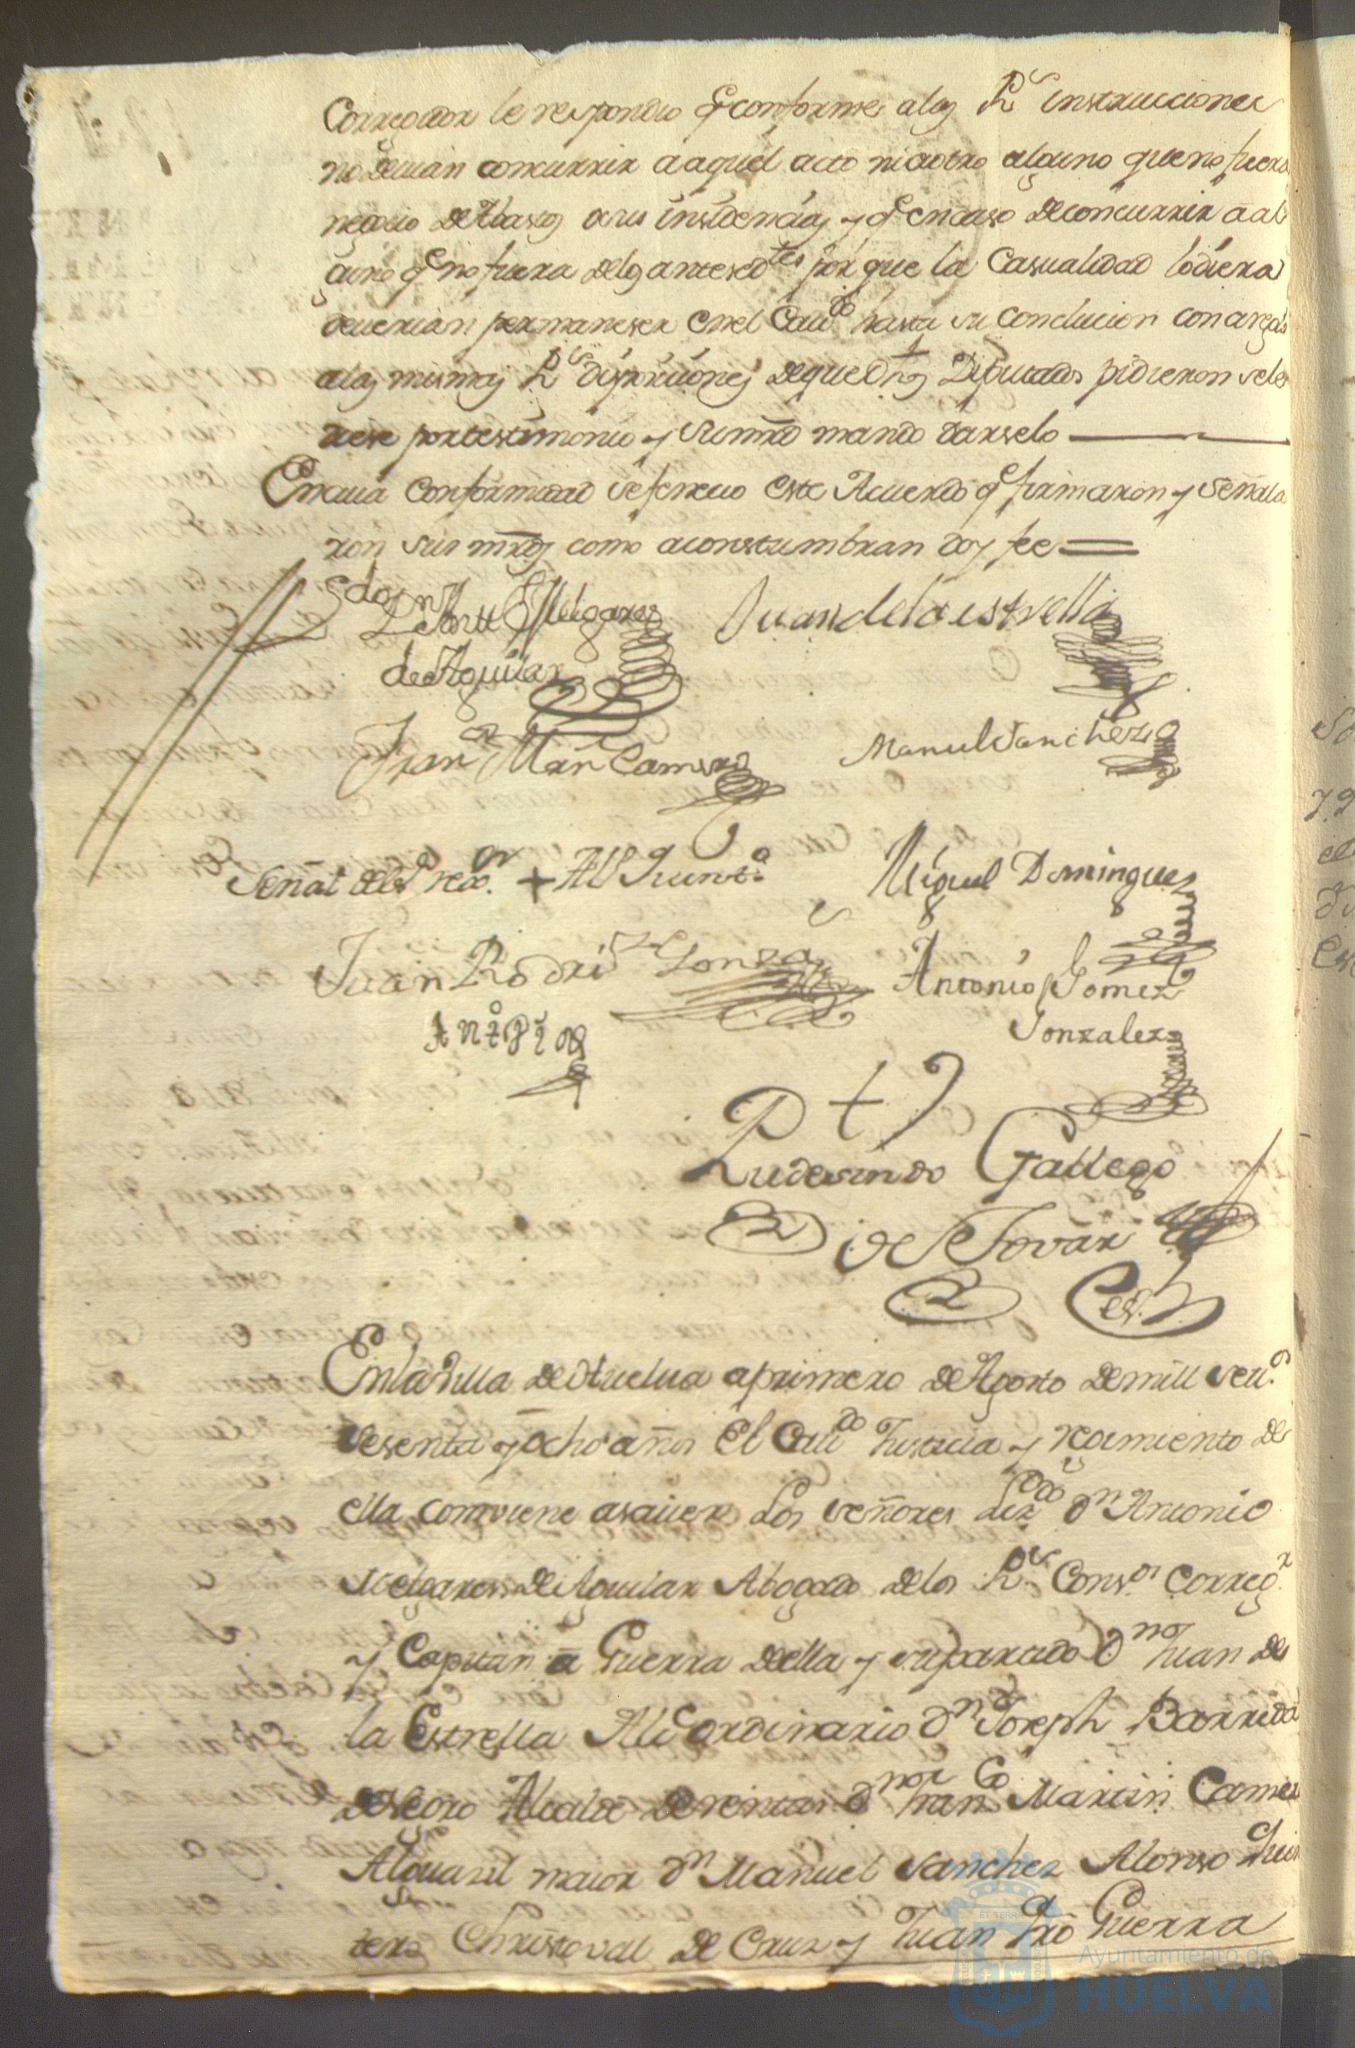 Corregidor le respondio q conforme a las Rs instrucciones
no devian concurrir a aquel acto ni aotro alguno que no fuera
negocio de Abastos o sus insidencias y q en caso de concurrir a al
guno q no fuera delos antesedtes por que la Casualidad lo diera
deverian permaneser en el Cavdo hasta su conclucion con arreglo
alas mismas Rs disposiciones de que dhos Diputados pidieron sele
diese por testimonio y su mrd mando darselo
En cuia conformidad se fenecio este Acuerdo q firmaron y señala
ron sus mrds como acostumbran doy fee
Ldo Dn Antt Melgarejo
de Aguilar
Juan de la estrella
Fran Marn Camero
Manuel Sanchez
Señal del Sr rexor + Alo Quinto
Miguel Dominguez
Juan Rodri Gonza
Antonio Gomez
Gonzalez
Rudesindo Gallego
de Tovar
Esno
En la Villa de Huelva a primero de Agosto de mill sets
sesenta y ocho años El Cavdo Justicia y reximiento de
ella combiene asaver Los señores Lizdo Dn Antonio
Melgarejo de Aguilar Abogado delos Rs Consos Corregr
y Capitan a Guerra de ella y su partido Dn Juan de
la Estrella Alce ordinario Dn Joseph Barreda
Alcalde de rentas Dn Franco Martin Camero
Alguasil maior Dn Manuel Sanchez Alonso Quin
tero Christoval de Cruz y Juan Guerra
ET TERRÆ
Ayuntamiento de
HUELVA